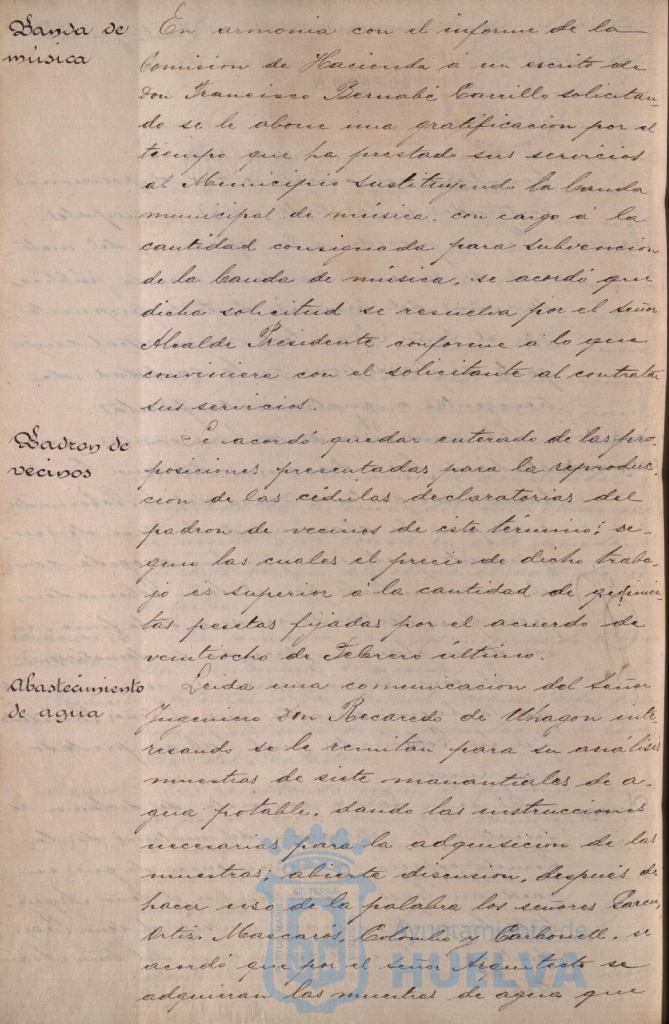 Banda de
música
En armonia con el informe de la
Comision de Hacienda á un escrito de
Don Francisco Bernabé Carrillo solicitan-
do se le abone una gratificacion por el
tiempo que ha prestado sus servicios
al Municipio sustituyendo la banda
municipal de música, con cargo á la
cantidad consignada para subvencion
de la banda de música, se acordó que
dicha solicitud se resuelva por el señor
Alcalde Presidente conforme á lo que
conviniera con el solicitante al contratar
sus servicios.
Padron de
vecinos
Se acordó quedar enterado de las pro-
posiciones presentadas para la reproduc-
cion de las cédulas declaratorias del
padron de vecinos de este término; se-
gun las cuales el precio de dicho traba-
jo es superior á la cantidad de
tas pesetas fijadas por el acuerdo de
veintiocho de Febrero último.
Abastecimiento
de agua
Leida una comunicacion del Señor
Ingeniero Don Recaredo de Uhagon inte-
resando se le remitan para su análisis
muestras de siete manantiales de a-
gua potable, dando las instrucciones
necesarias para la adquisicion de las
muestras; abierta discusion, después de
hacer uso de la palabra los señores Garcia,
Ortiz, Mascarós, Colombo y Carbonell, se
acordó que por el señor Arquitecto se
adquieran las muestras de agua que
Ayuntamiento de
HUELVA